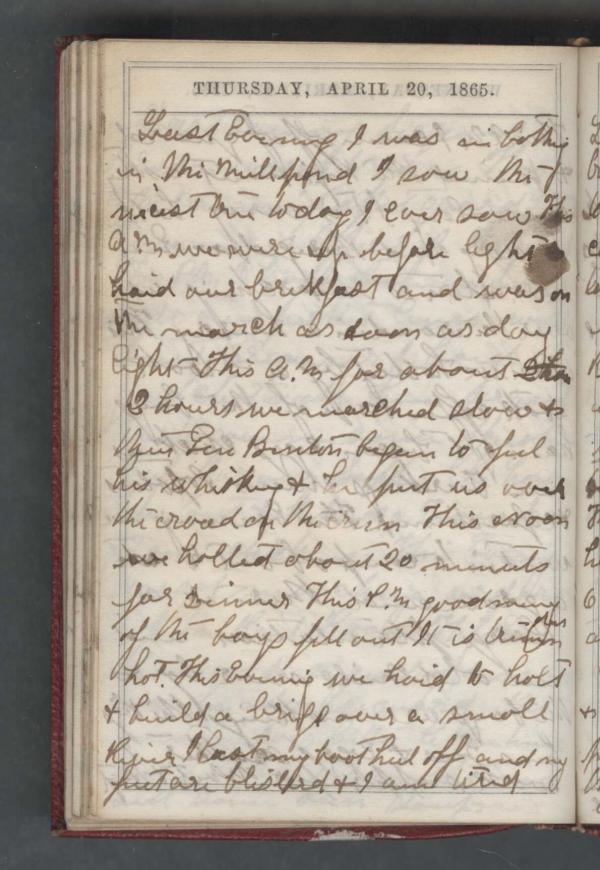 THURSDAY, APRIL 20, 1865.
Last Evening I was in bothing
in the Millpond I saw the
nicest One today I ever saw This
A.M we were up before light
haid our brekfast and was on
the march as soon as day
light This A.M for about
2 hours we marched slow &
then Gen Benton begun to feel
his whiskey & he put us over
the croad on the run This noon
we holled about 20 minuts
for Dinner This P.M good many
of the boys fell out It is
hot. This Evening we haid to holt
& build a brige over a small
River I Lost my boot heel off and my
feet are blisterd & I am tired